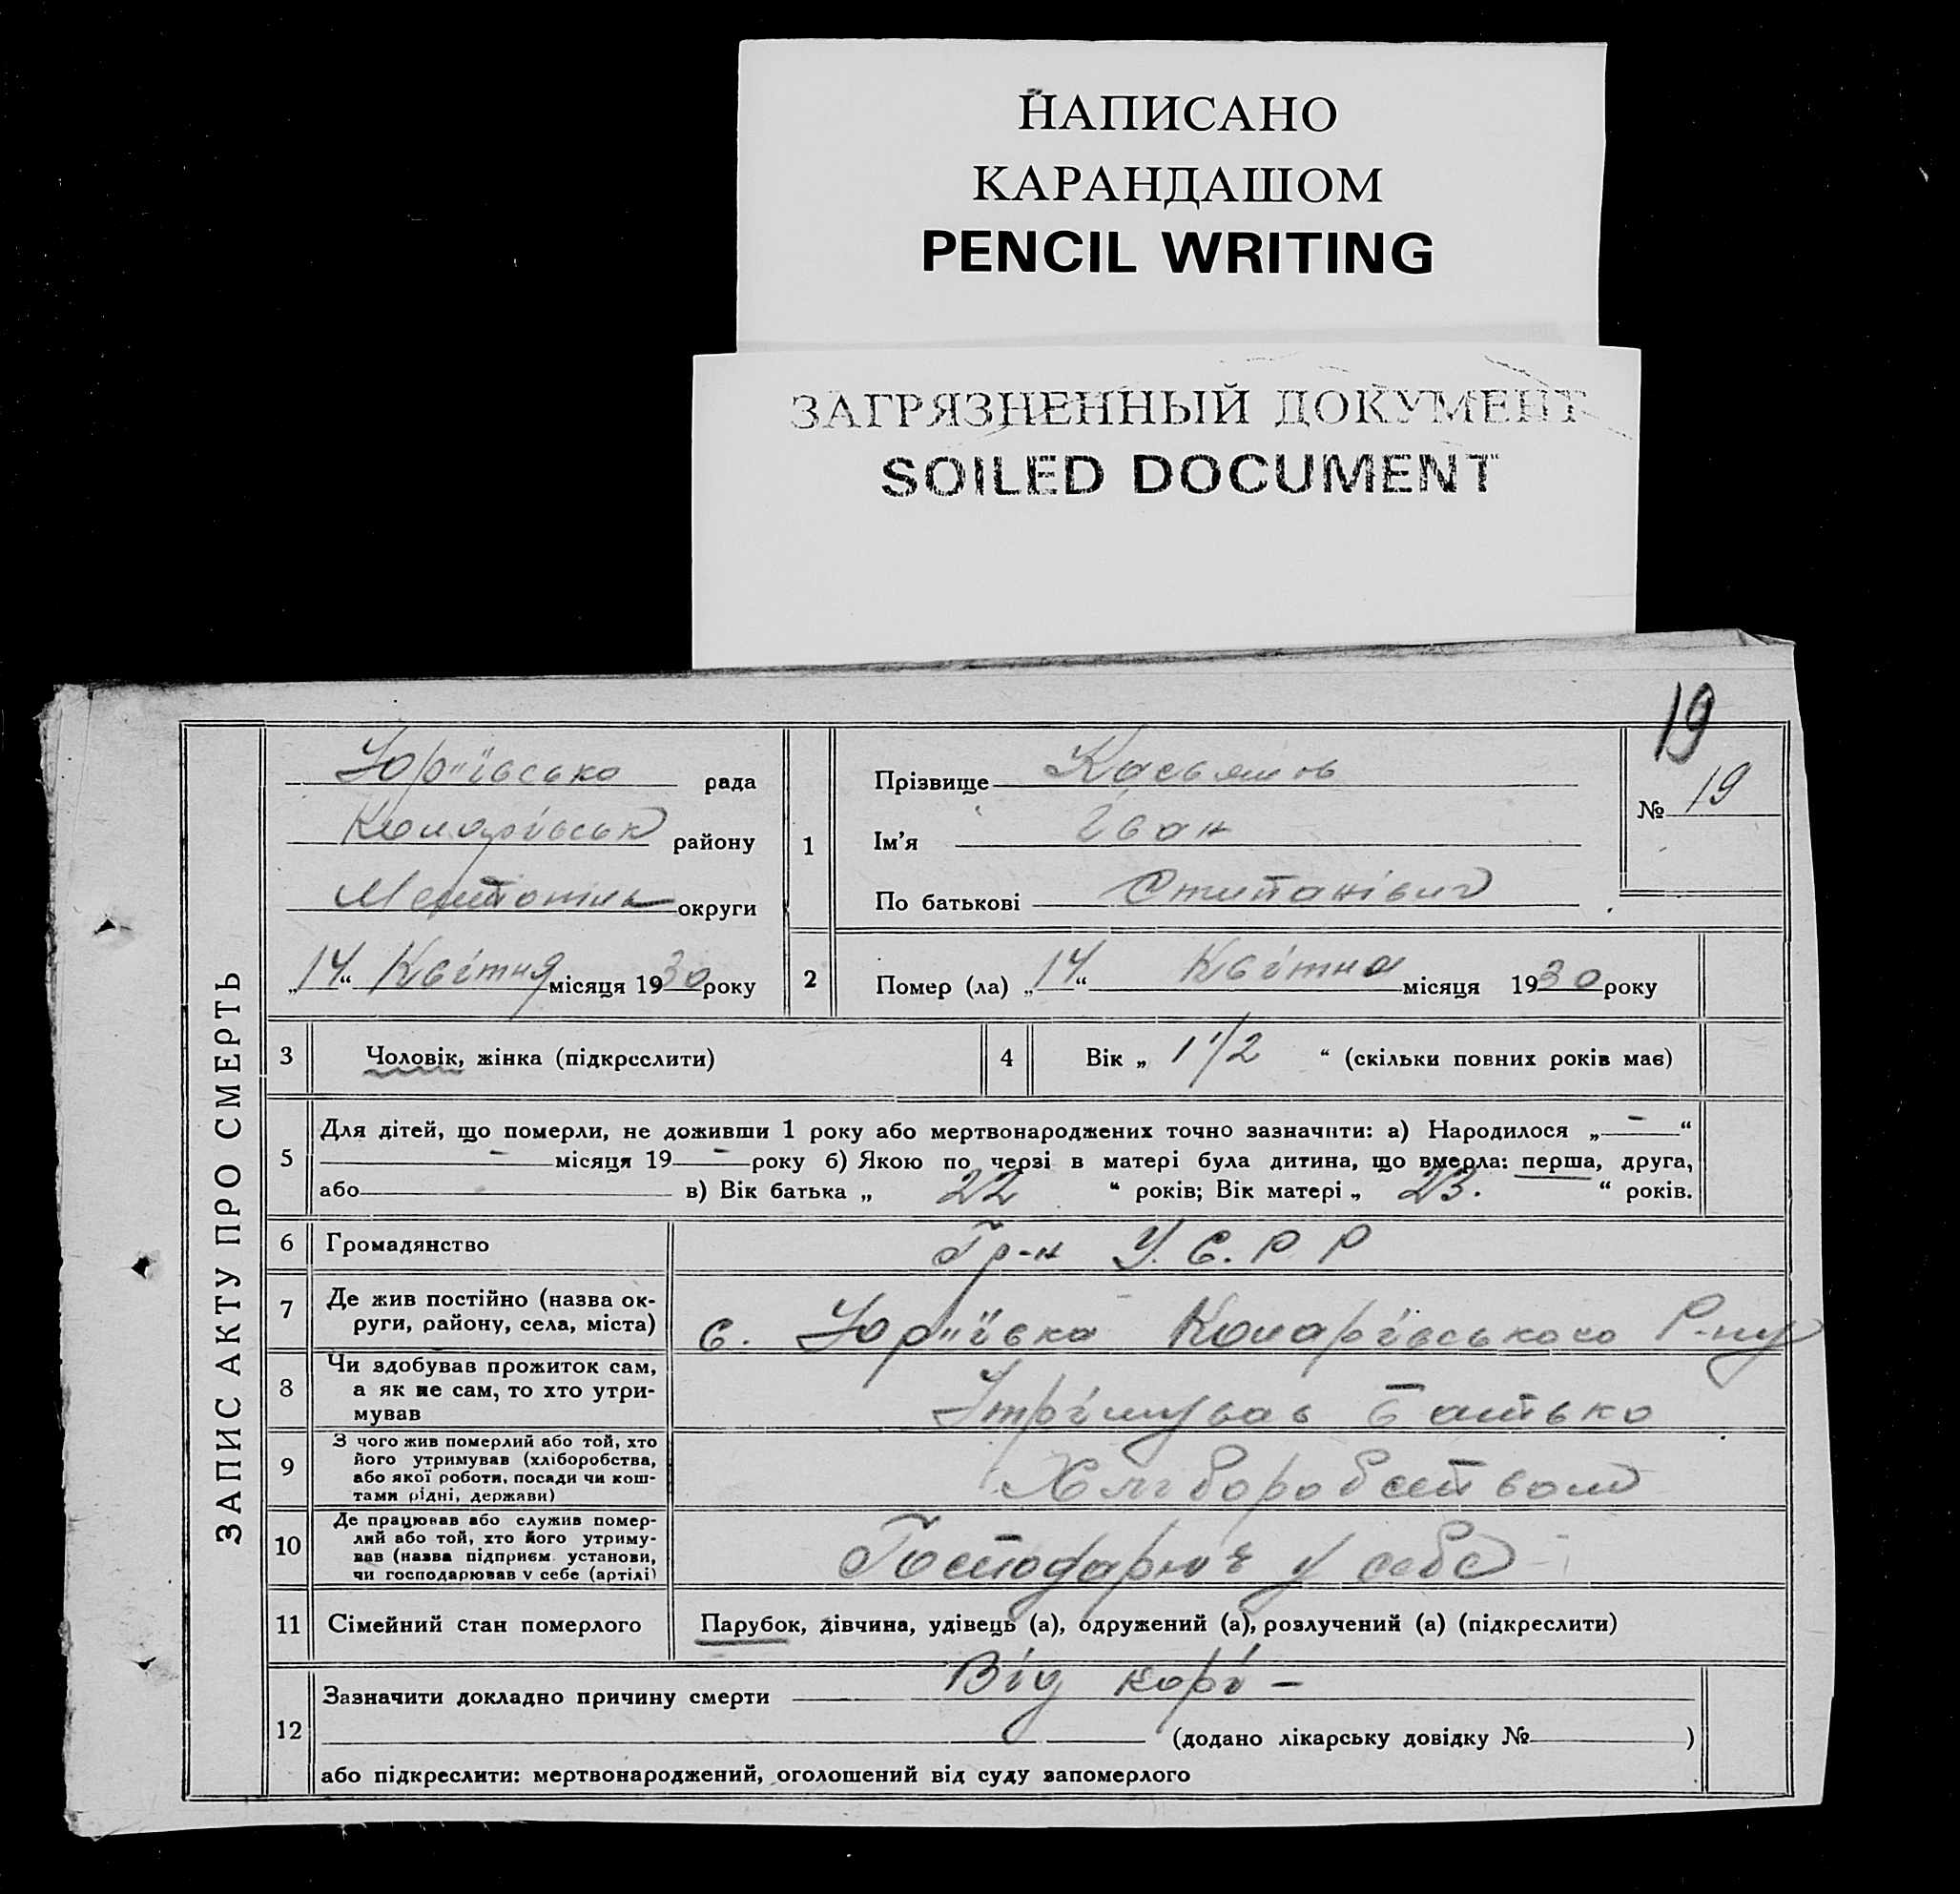 НАПИСАНО
КАРАНДАШОМ
PENCIL WRITING
ЗАГРЯЗНЕННЫЙ ДОКУМЕНТ
SOILED DOCUMENT
19
ЗАПИС АКТУ ПРО СМЕРТЬ
Юр"ївсько рада
Коларівськ району
округи
„14“ Квітня місяця 1930 року
1
Прізвище Касьянов
Ім'я Іван
По батькові Стипанівич
№ 19
2 Помер (ла) „14“ Квітна місяця 1930 року
3 Чоловік, жінка (підкреслити)
4 Вік „ 1 1/2 “ (скільки повних років має)
5 Для дітей, що померли, не доживши 1 року або мертвонароджених точно зазначити: а) Народилося „ - “
- місяця 19 - року б) Якою по черзі в матері була дитина, що вмерла: перша, друга,
або в) Вік батька „ 22 “ років; Вік матері „ 23. “ років.
6 Громадянство Гр-н У.С.Р Р
7 Де жив постійно (назва ок-
руги, району, села, міста) с. Юр"ївка Коларівського Р-ну
8 Чи здобував прожиток сам,
а як не сам, то хто утри-
мував Утрімував батько
9 З чого жив померлий або той, хто
його утримував (хліборобства,
або якої роботи, посади чи кош-
тами рідні, держави) Хліборобством
10 Де працював або служив помер-
лий або той, хто його утриму-
вав (назва підприєм. установи,
чи господарював у себе (артілі) Господарює у себе
11 Сімейний стан померлого Парубок, дівчина, удівець (а), одружений (а), розлучений (а) (підкреслити)
12 Зазначити докладно причину смерти Від корі -
(додано лікарську довідку № )
або підкреслити: мертвонароджений, оголошений від суду запомерлого